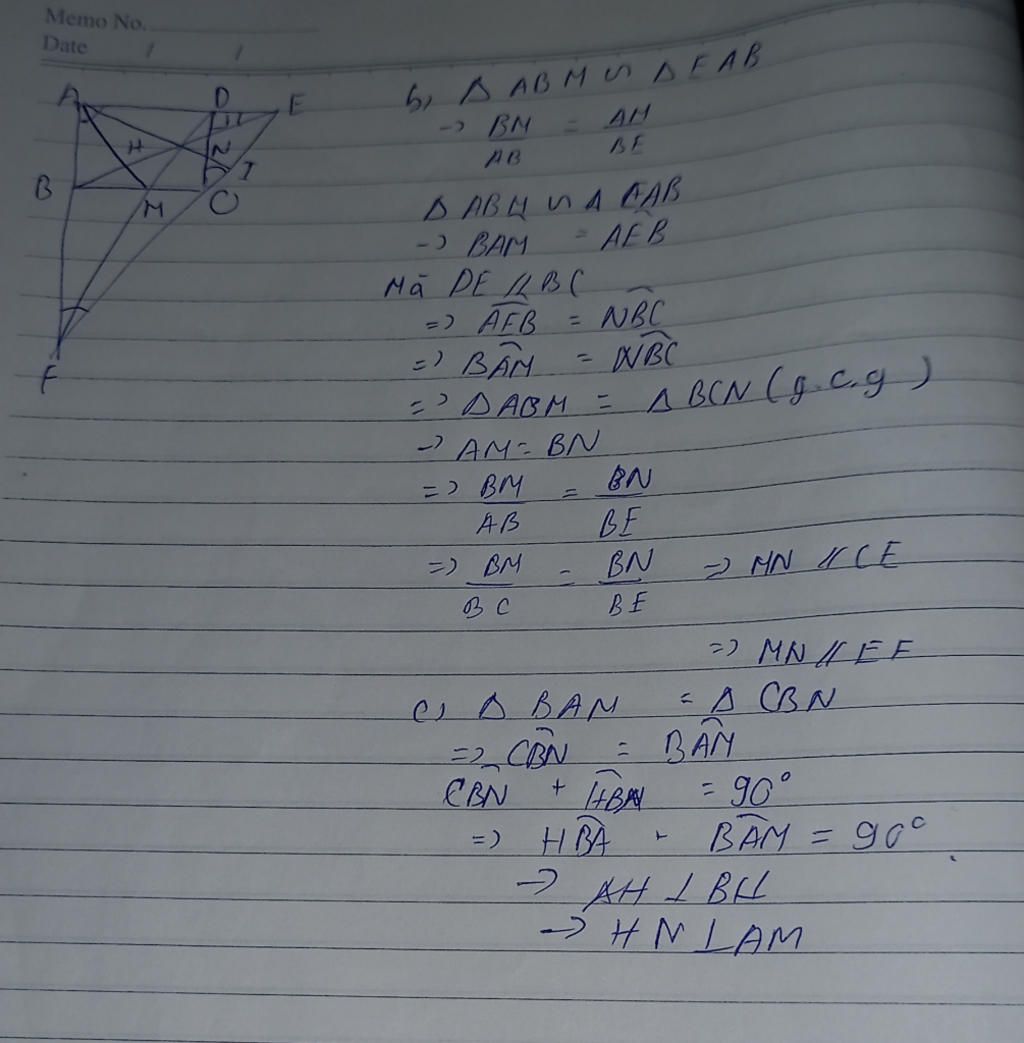 Memo No.
Date / /
A D E
H N
B I
M C
F
b, Δ ABM ∽ Δ EAB
→ BM/AB = AM/BE
Δ ABM ∽ Δ EAB
→ BAM = AEB
Mà DE // BC
=> AEB = NBC
=> BAM = NBC
=> Δ ABM = Δ BCN (g.c.g)
→ AM = BN
=> BM/AB = BN/BE
=> BM/BC = BN/BE => MN // CE
=> MN // EF
c, Δ BAM = Δ CBN
=> CBN = BAM
CBN + HBA = 90°
=> HBA + BAM = 90°
→ AH ⊥ BH
→ HN ⊥ AM